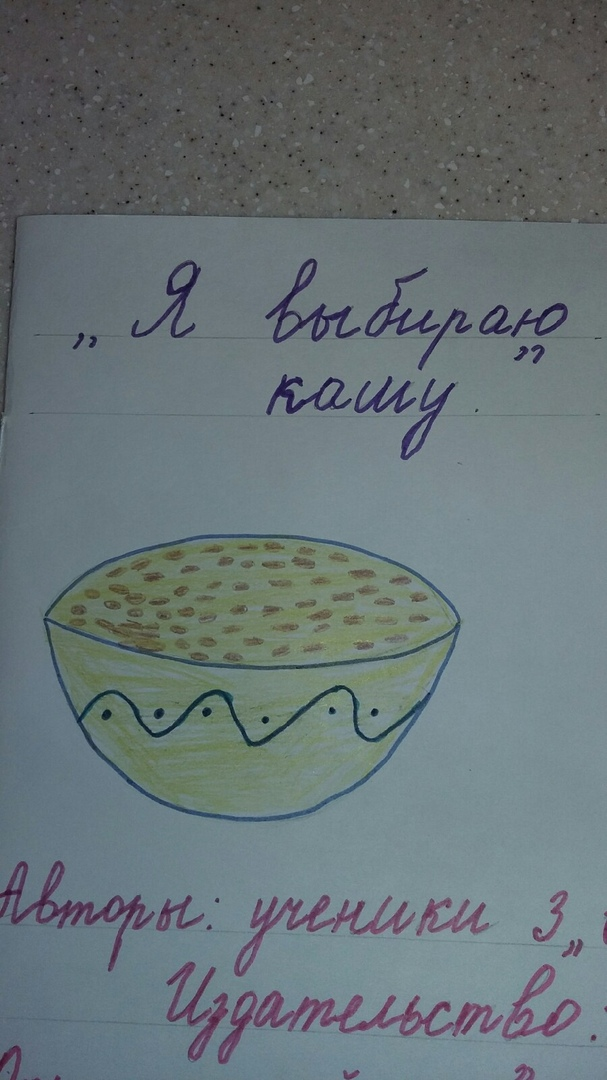 „Я выбираю
кашу.”
Авторы: ученики 3 „
Издательство: